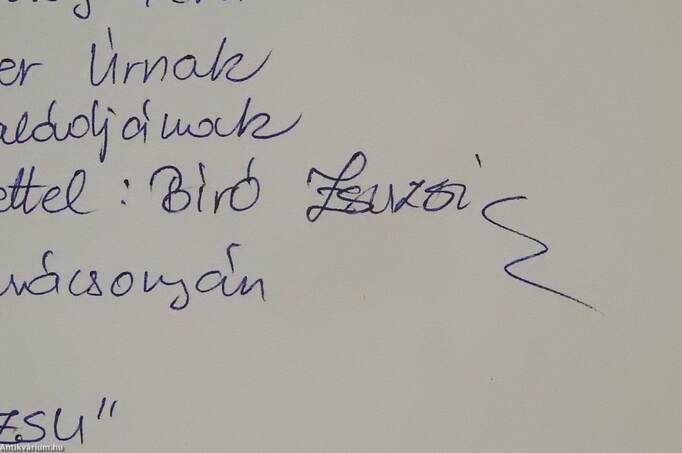 er Úrnak
aládjámak
ettel : Bíró Zsuzsi
rácsonyán
zsu"
Antikvarium.hu